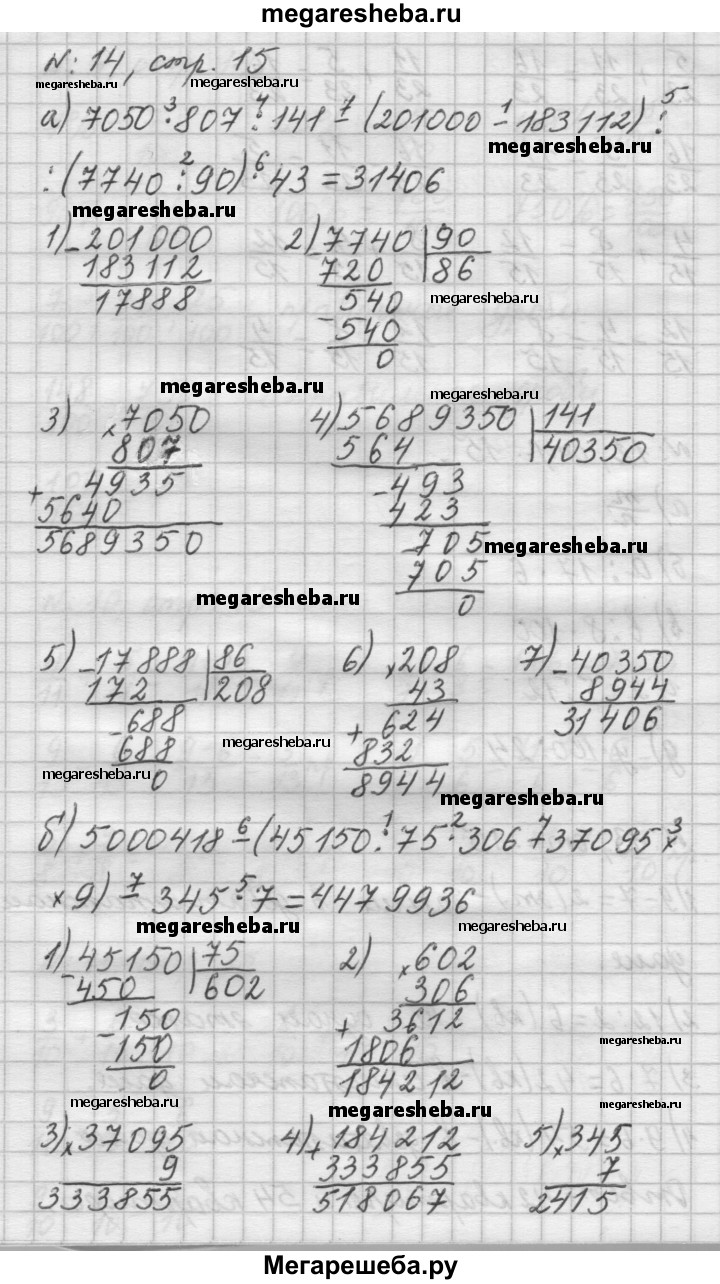 megaresheba.ru
N: 14, стр. 15
megaresheba.ru megaresheba.ru
3 4 7 1 5
а) 7050 · 807 : 141 − (201000 − 183112) :
megaresheba.ru
2 6
: (7740 : 90) · 43 = 31406
megaresheba.ru
1) − 201000 2) − 7740 | 90
183112 720 | 86
17888 540 megaresheba.ru
− 540
0
megaresheba.ru megaresheba.ru
3) × 7050 4) 5689350 | 141
807 564 | 40350
+ 4935 − 493
5640 423
5689350 − 705 megaresheba.ru
705
megaresheba.ru 0
5) − 17888 | 86 6) × 208 7) − 40350
172 | 208 43 8944
− 688 + 624 31406
688 megaresheba.ru 832
megaresheba.ru 0 8944
megaresheba.ru
6 1 2 7 3
б) 5000418 − (45150 : 75 · 306 + 37095 ×
7 5
× 9) − 345 · 7 = 4479936
megaresheba.ru megaresheba.ru
1) − 45150 | 75 2) × 602
450 | 602 306
− 150 + 3612
150 1806
0 184212
megaresheba.ru megaresheba.ru megaresheba.ru
3) × 37095 4) + 184212 5) × 345
9 333855 7
333855 518067 2415
Мегарешеба.ру